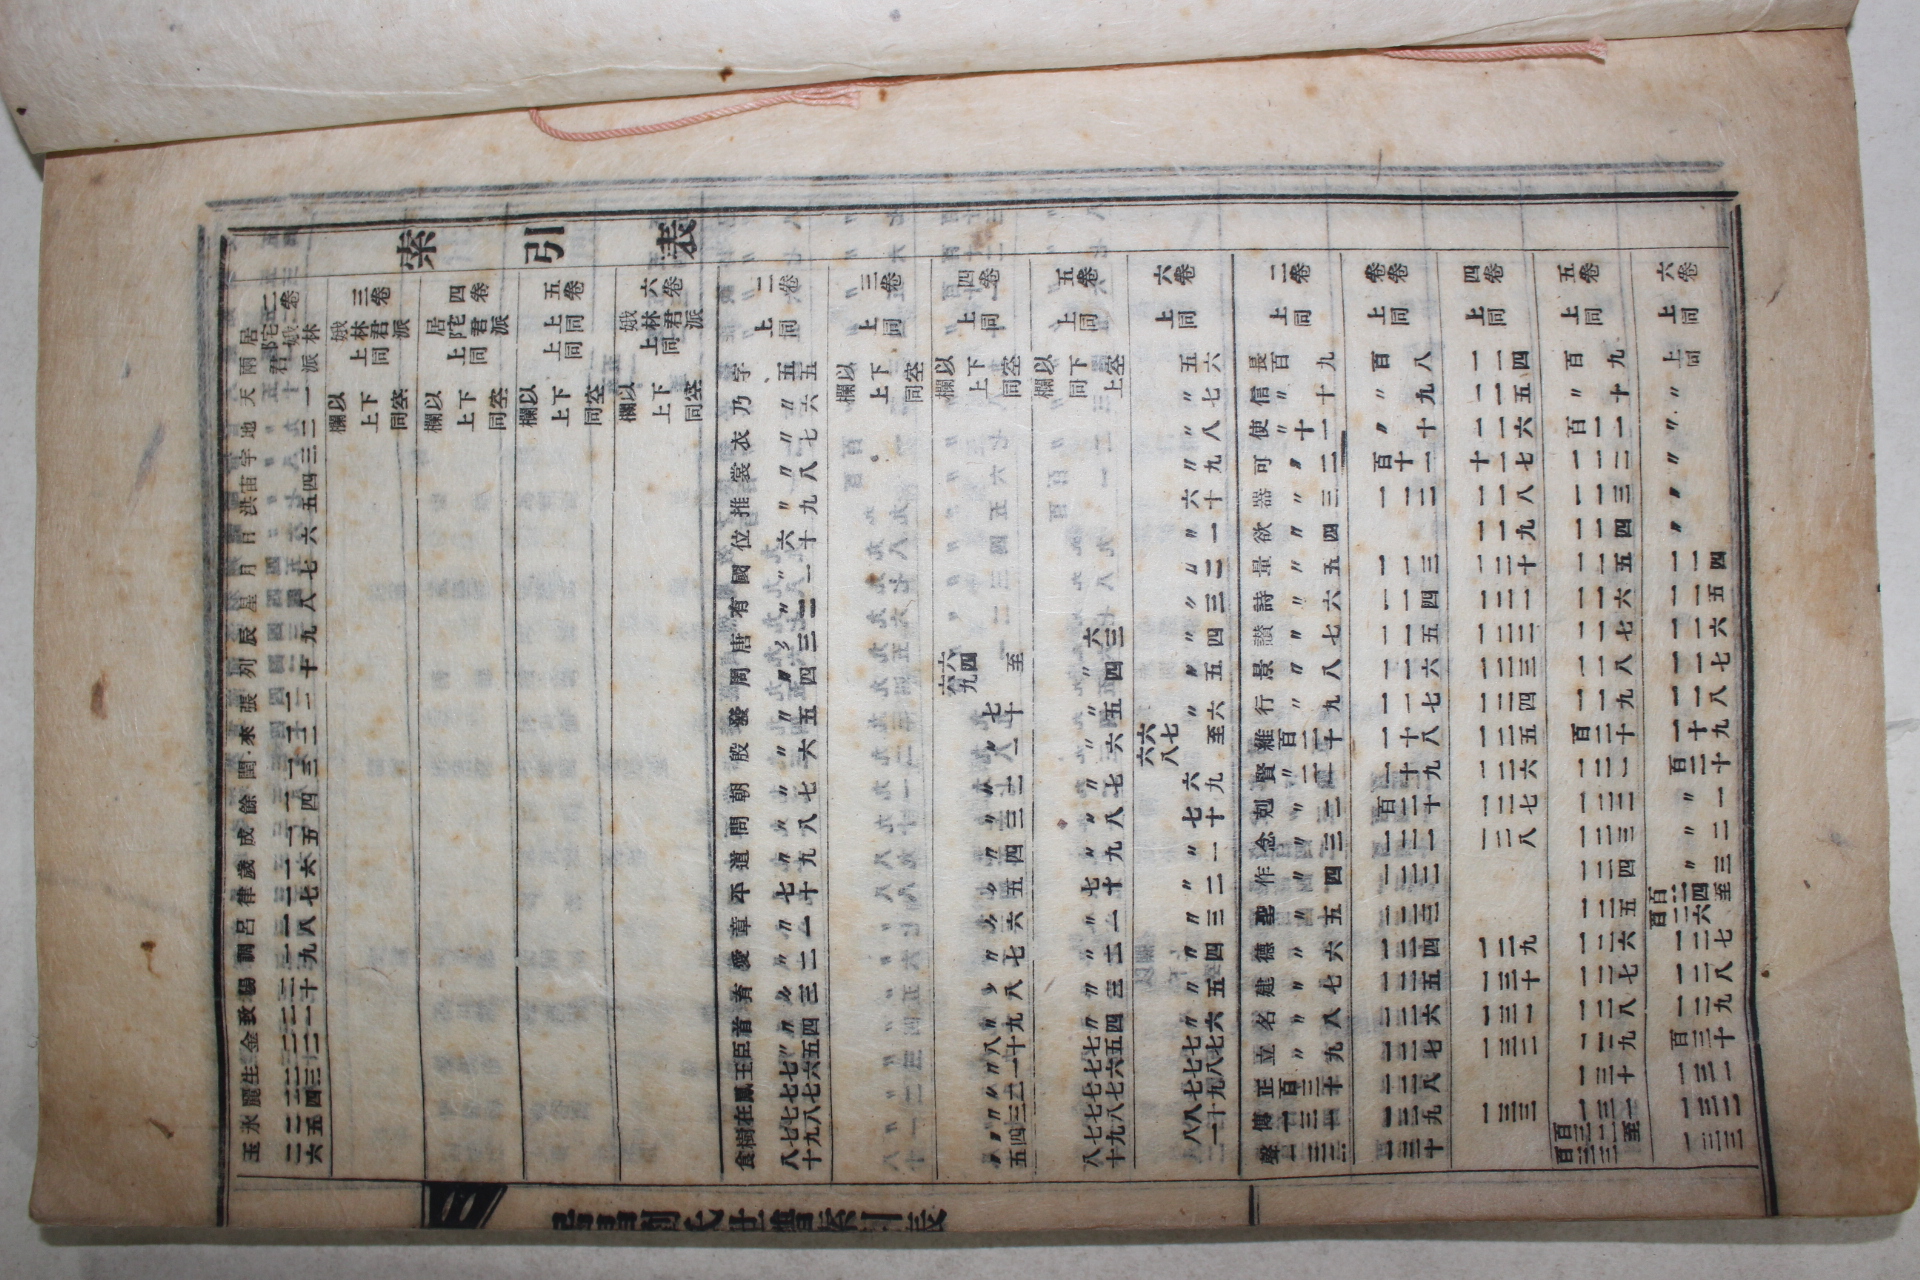 索引表
二卷 居陀娥林兩君派
天 一
地 二
宇 三
宙 四
洪 五
日 六
月 七
星 八
辰 九
列 十
張 一一
來 一二
閏 一三
餘 一四
成 一五
歲 一六
律 一七
呂 一八
調 一九
陽 二十
致 二一
金 二二
生 二三
麗 二四
水 二五
玉 二六
三卷 娥林君派 上同
以下空欄上同
四卷 居陀君派 上同
以下空欄上同
五卷 上同 上同
以下空欄上同
六卷 娥林君派 上同
以下空欄上同
二卷 上同
字 五五
乃 〃六
衣 〃七
裳 〃八
推 〃九
位 六十
國 〃一
有 〃二
唐 〃三
周 〃四
發 〃五
殷 〃六
朝 〃七
問 〃八
道 〃九
平 七十
章 〃一
愛 〃二
育 〃三
首 〃四
臣 〃五
王 七六
鳳 七七
在 七八
樹 七九
食 八十
三卷 上同
以下空欄上同
四卷 上同
以下空欄上同
六四至六九
七十
〃一
〃二
〃三
〃四
〃五
〃六
〃七
〃八
〃九
八十
〃一
〃二
〃三
〃四
〃五
五卷 上同
以下空欄同上
六三
〃四
〃五
〃六
〃七
〃八
〃九
七十
〃一
〃二
〃三
〃四
七五
七六
七七
七八
七九
八十
六卷 上同
五六
〃七
〃八
〃九
六十
〃一
〃二
〃三
〃四
〃五
〃六
六七至六八
六九
七十
〃一
〃二
〃三
〃四
〃五
〃六
七七
七八
七九
八十
八一
二卷 上同
長 百九
信 〃十
使 〃十一
可 〃二
器 〃三
欲 〃四
量 〃五
詩 〃六
讃 〃七
景 〃八
行 〃九
維 百二十
賢 〃二一
剋 〃二
念 〃三
作 〃四
聖 〃五
德 〃六
建 〃七
名 〃八
立 〃九
正 百三十
傳 一三一
聲 一三二
卷卷 上同
百八
〃九
〃十
百十一
一一二
一一三
一一四
一一五
一一六
一一七
一十八
一十九
百二十
一二一
一二二
一二三
一二四
一二五
一二六
一二七
一二八
一二九
一三十
四卷 上同
一一四
一一五
一一六
十一七
一一八
一一九
一二十
一二一
一二二
一二三
一二四
一二五
一二六
一二七
一二八
一二九
一三十
一三一
一三二
一三三
五卷 上同
百九
〃十
百一一
一一二
一一三
一一四
一一五
一一六
一一七
一一八
一一九
百二十
一二一
一二二
一二三
一二四
一二五
一二六
一二七
一二八
一二九
一三十
一三一
百三二至百三三
六卷 上同
上同
〃
〃
〃
〃
〃
一一四
一一五
一一六
一一七
一一八
一十九
百二十
〃一
〃二
〃三
百二四至百二六
一二七
一二八
一二九
百三十
一三一
一三二
一三三
居昌劉氏世譜索引表
二